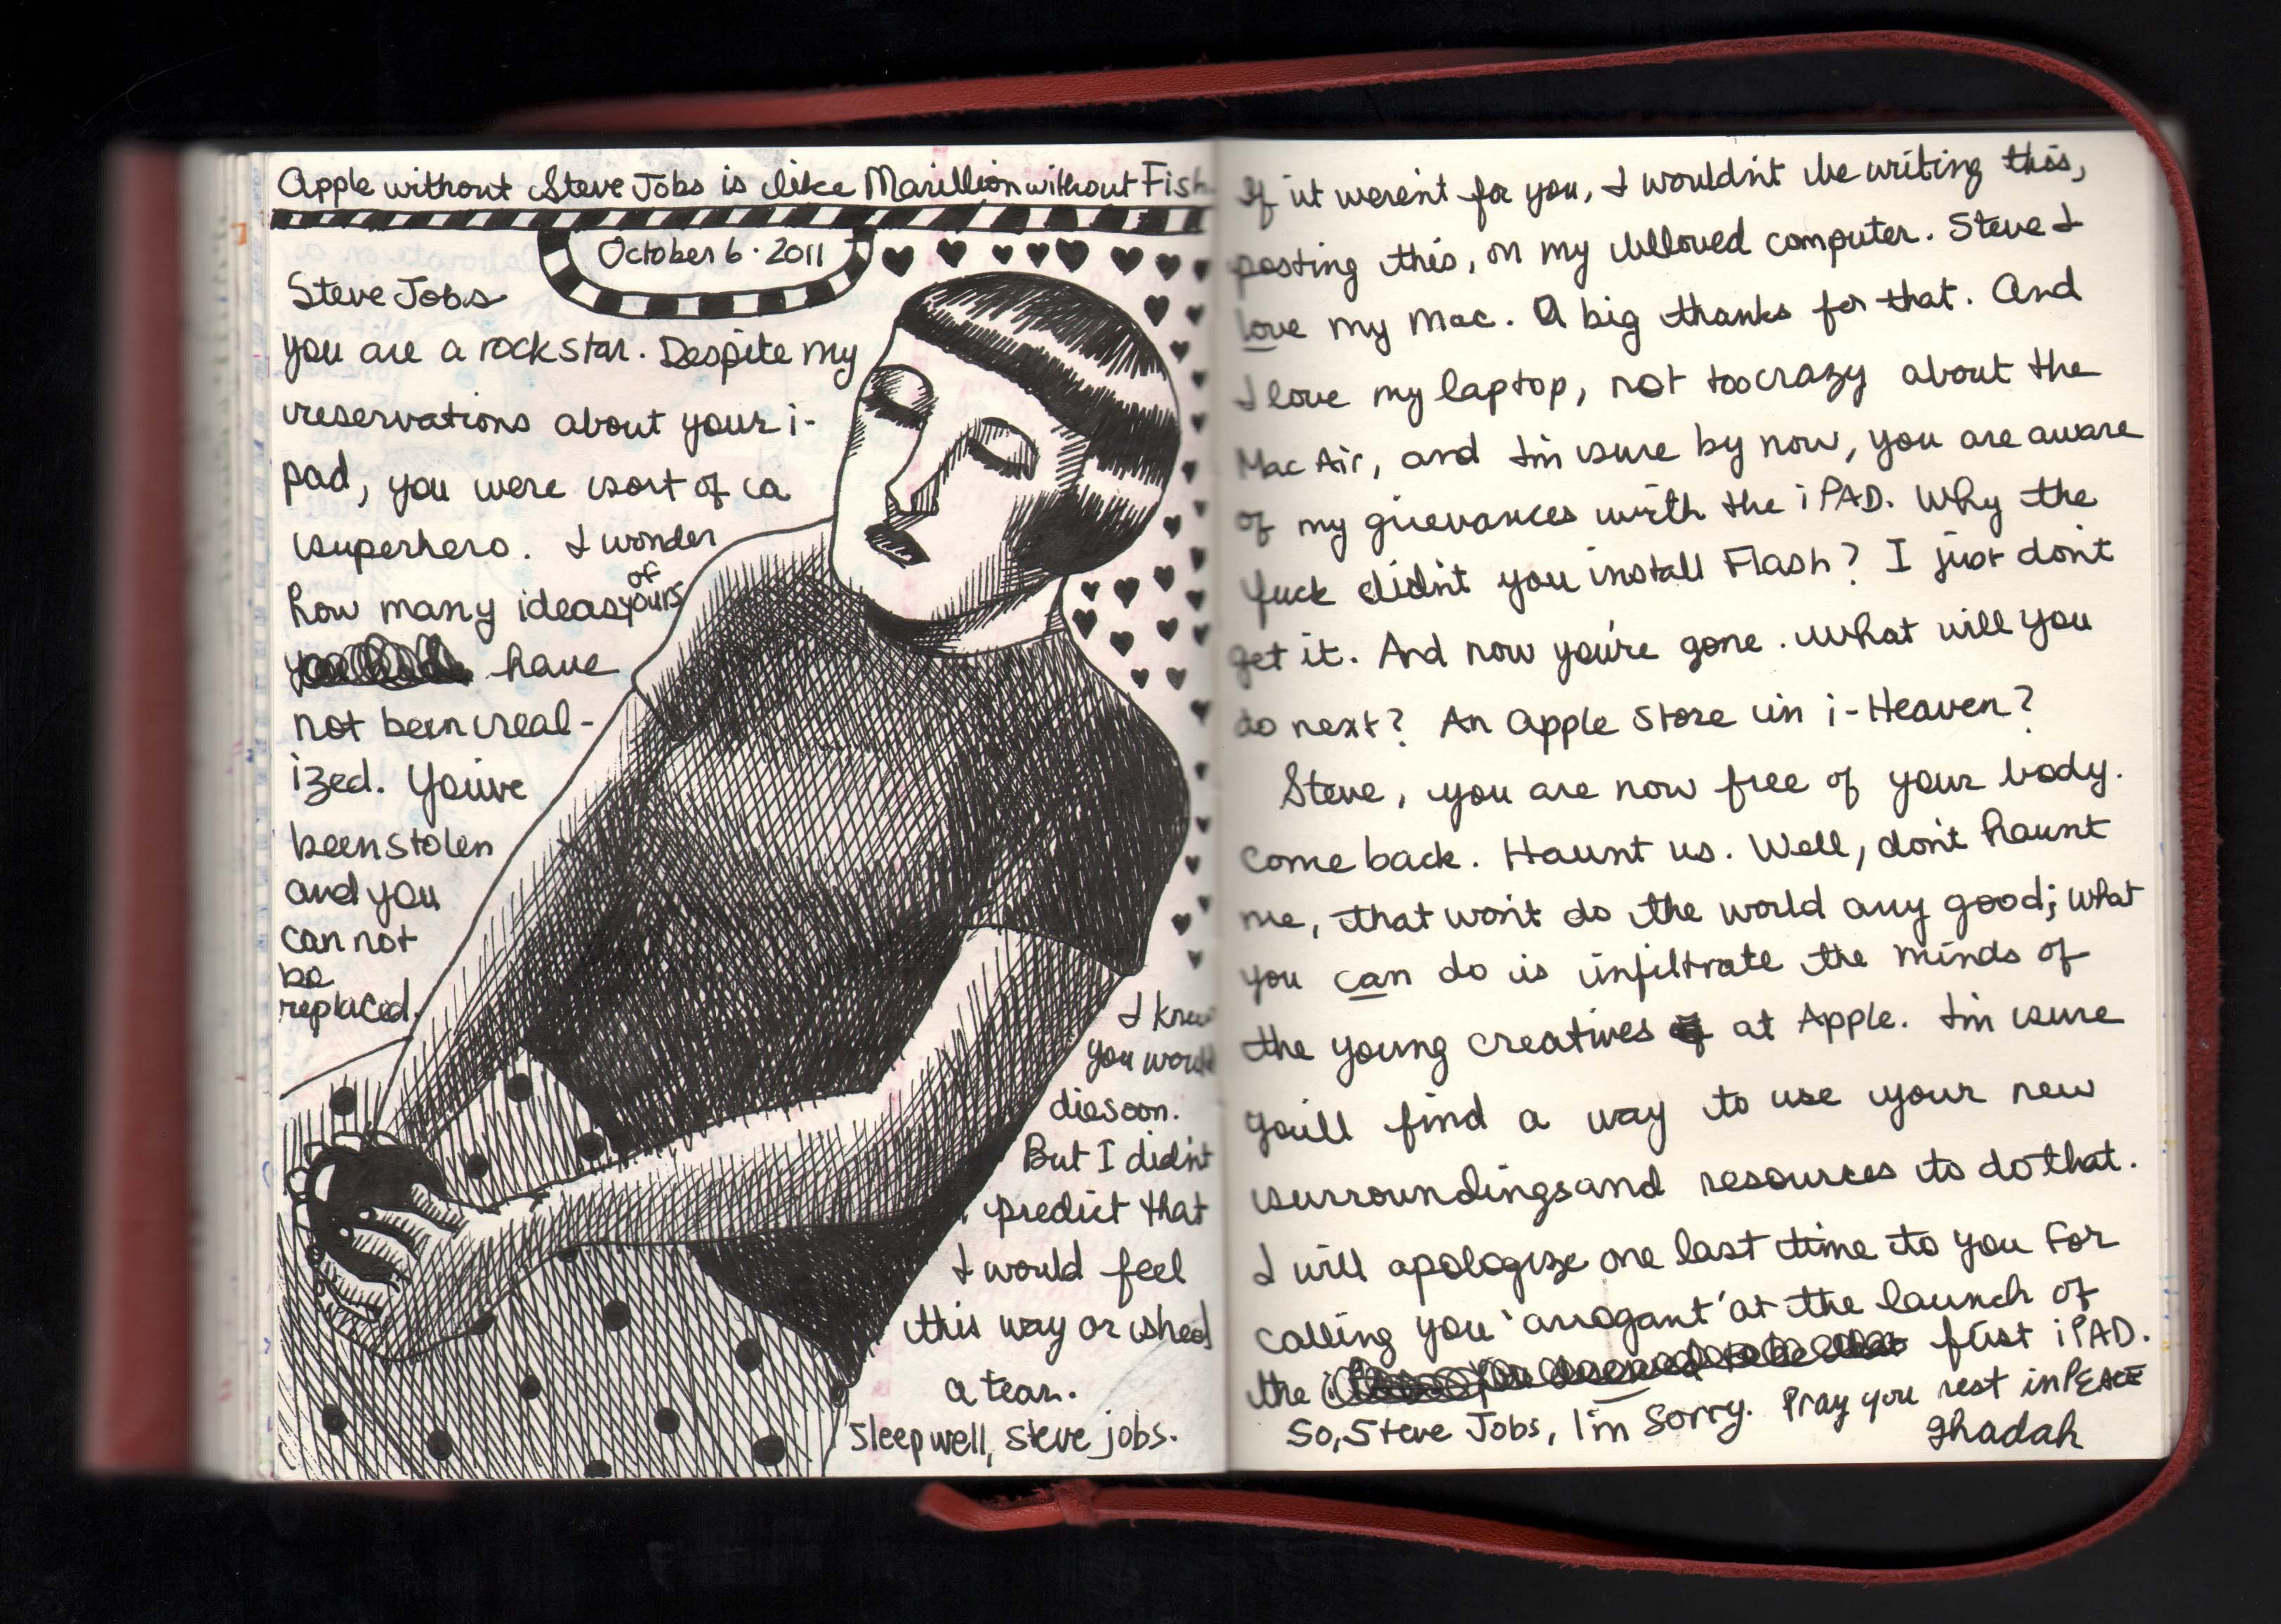 Apple without Steve Jobs is like Marillion without Fish
October 6 · 2011
Steve Jobs
you are a rockstar. Despite my
reservations about your i-
pad, you were sort of a
superhero. I wonder
how many ideas of yours
have
not been real-
ized. You've
been stolen
and you
can not
be
replaced.
I knew
you would
die soon.
But I didn't
predict that
I would feel
this way or shed
a tear.
Sleep well, Steve jobs.
If it weren't for you, I wouldn't be writing this,
posting this, on my beloved computer. Steve I
love my Mac. A big thanks for that. And
I love my laptop, not too crazy about the
Mac Air, and I'm sure by now, you are aware
of my grievances with the iPAD. Why the
fuck didn't you install Flash? I just don't
get it. And now you're gone. What will you
do next? An Apple Store in i-Heaven?
Steve, you are now free of your body.
Come back. Haunt us. Well, don't haunt
me, that won't do the world any good; what
you can do is infiltrate the minds of
the young creatives at Apple. I'm sure
you'll find a way to use your new
surroundings and resources to do that.
I will apologize one last time to you for
calling you 'arrogant' at the launch of
the first iPAD.
So, Steve Jobs, I'm sorry. Pray you rest in PEACE
Ghadah